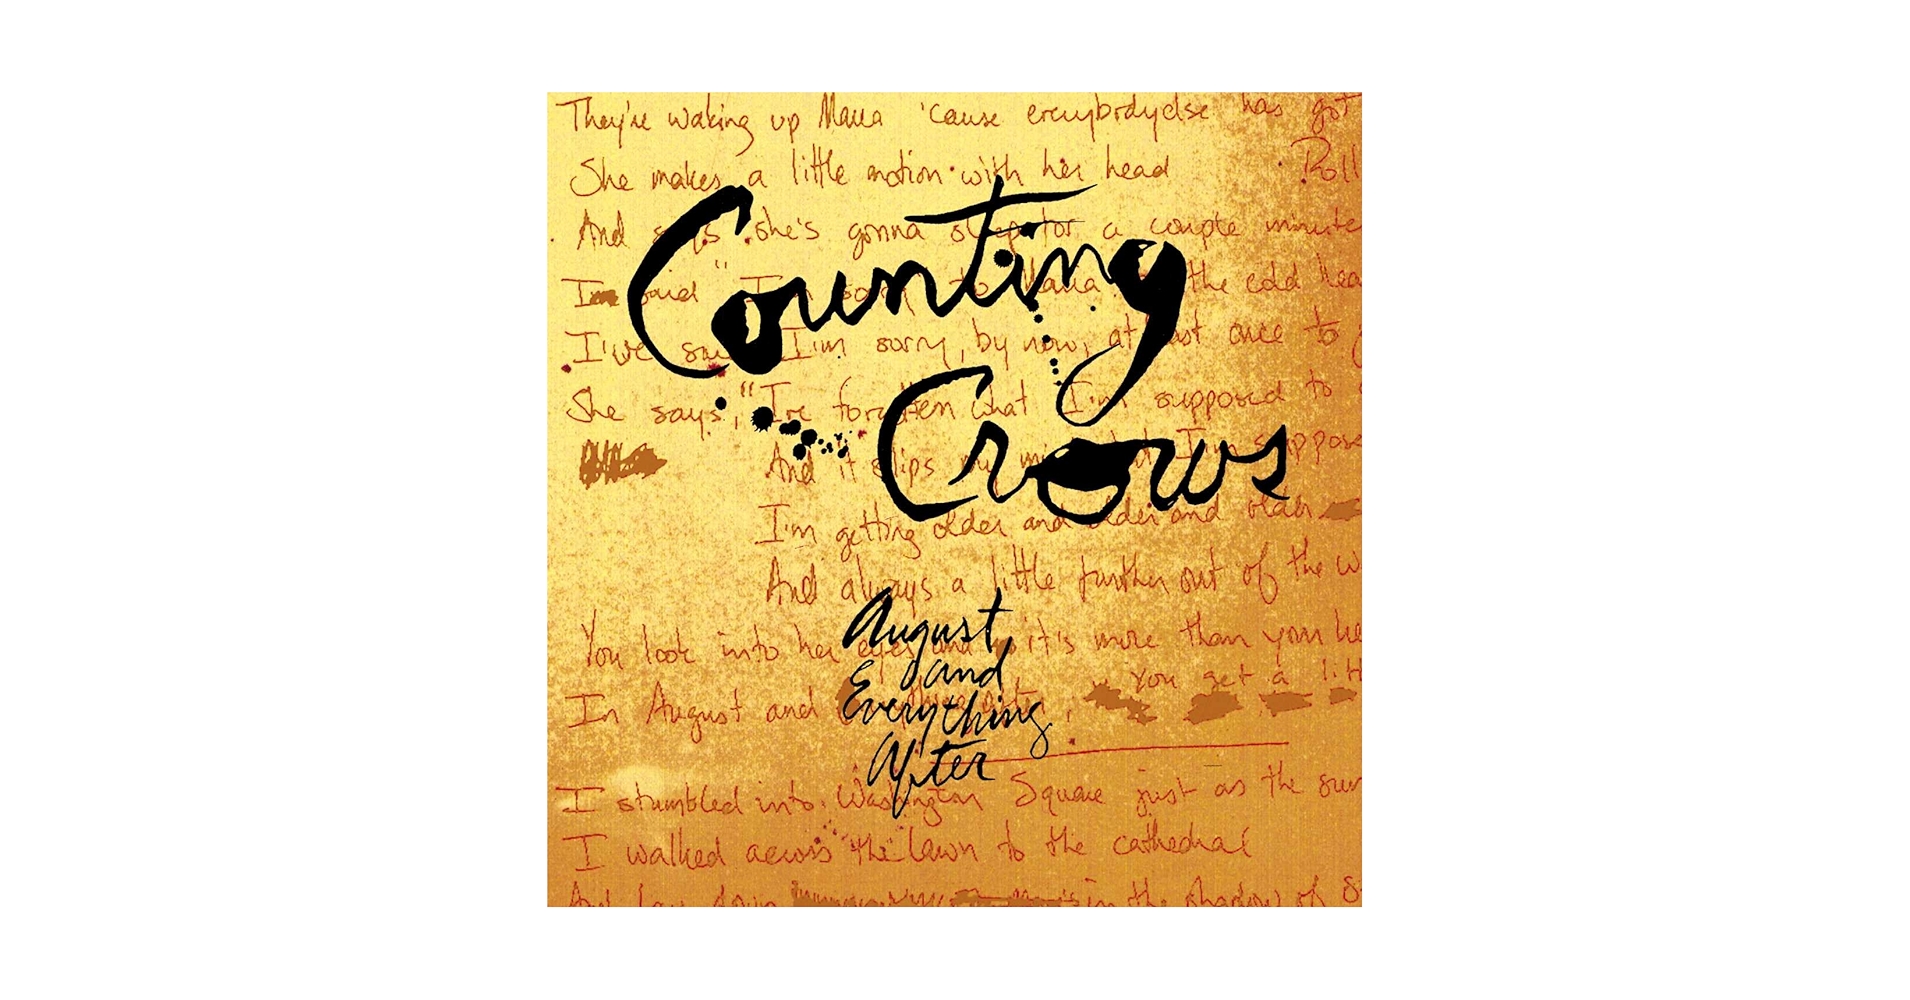 They're waking up Maria 'cause everybodyelse has got
She makes a little motion with her head Roll
And says she's gonna sleep for a couple minute
Counting
I'm said "I'm sorry to Maria the cold hea
I've sa I'm sorry, by now, at last once to
Crows
She says, "I've forgotten what I'm supposed to
And it slips my mi I'm suppose
I'm getting older and older and older
And always a little further out of the w
August
and
Everything
After
You look into her eyes and it's more than your he
In August and You get a litt
I stumbled into Washington Square just as the sun
I walked across the lawn to the cathedral
And lay down in the shadow of S